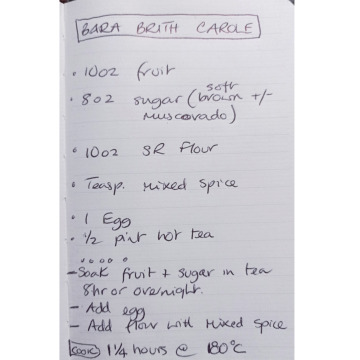 BARA BRITH CAROLE
• 10oz fruit
soft
• 8oz sugar (brown +/-
Muscovado)
• 10oz SR Flour
• Teasp. Mixed Spice
• 1 Egg
• ½ pint hot tea
- Soak fruit + sugar in tea
8hr or overnight.
- Add egg
- Add flour with Mixed Spice
COOK 1¼ hours @ 180°C